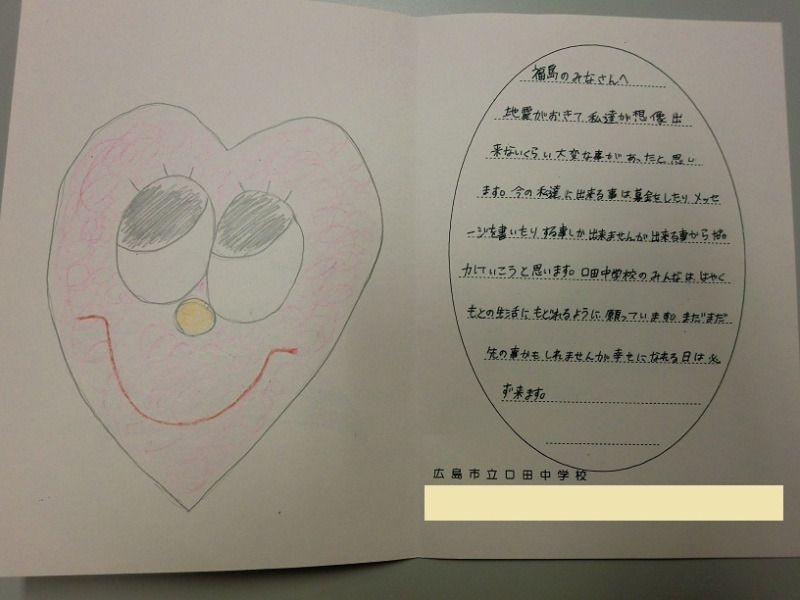 福島のみなさんへ
地震がおきて私達が想像出
来ないくらい大変な事があったと思い
ます。今の私達に出来る事は募金をしたりメッセ
ージを書いたりする事しか出来ませんが出来る事から協
力していこうと思います。口田中学校のみんなは、はやく
もとの生活にもどれるように願っています。まだまだ
先の事かもしれませんが幸せになれる日は必
ず来ます。
広島市立口田中学校